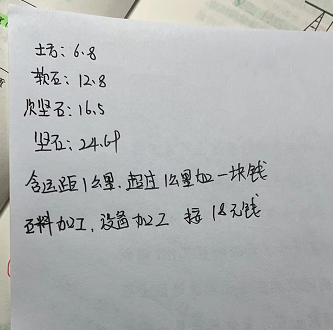 土方：6.8
软石：12.8
次坚石：16.5
坚石：24.69
含运距1公里，超过1公里加一块钱
石料加工，设备加工 接 18元钱